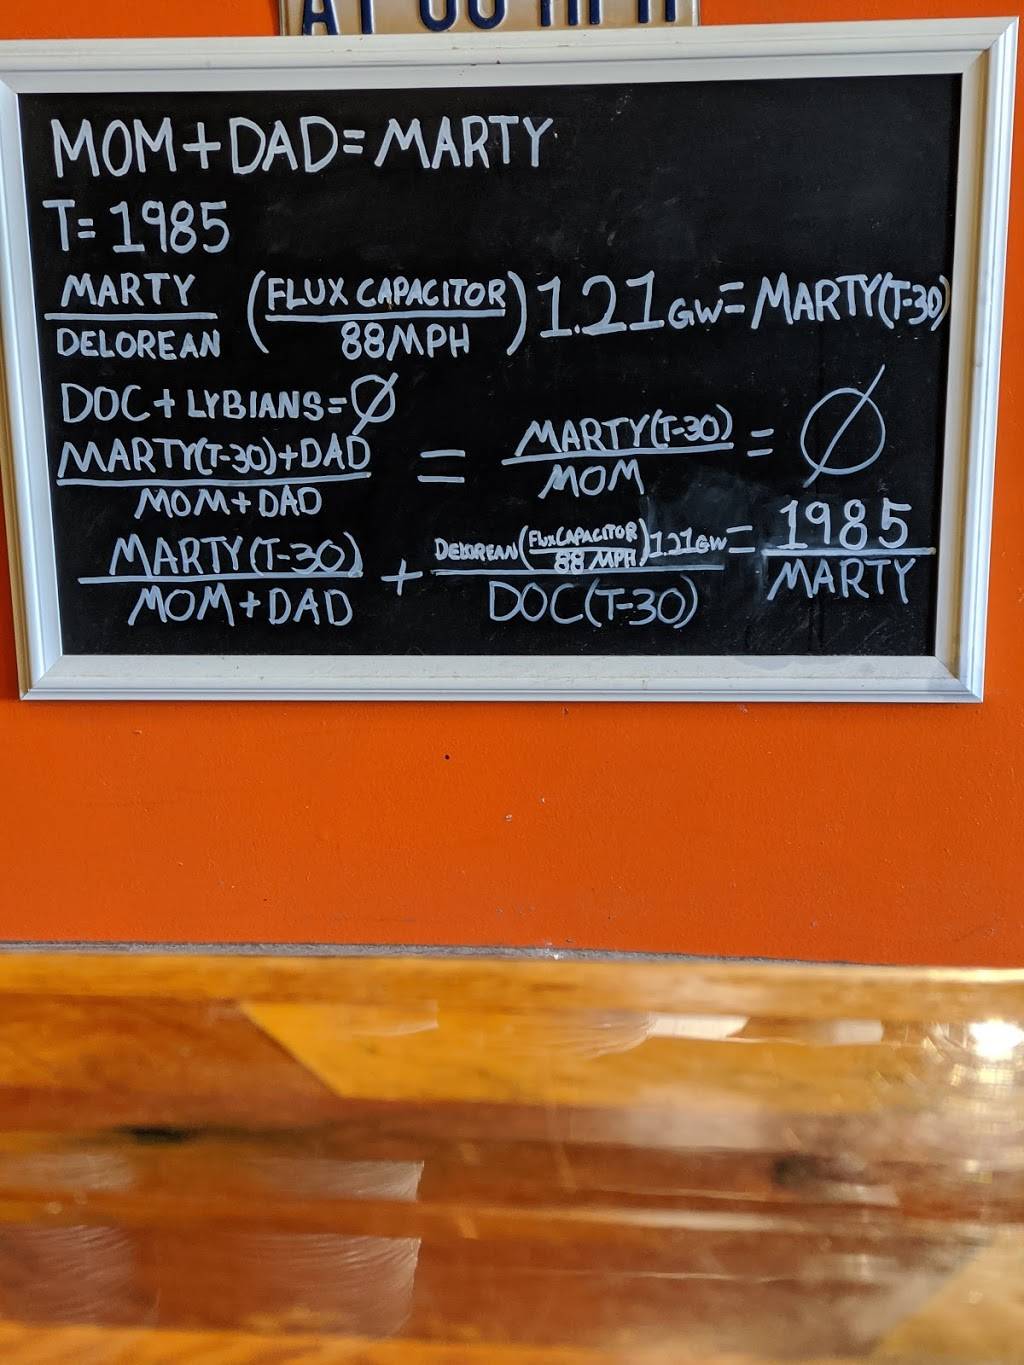 AT 88 MPH
MOM+DAD=MARTY
T=1985
MARTY/DELOREAN (FLUX CAPACITOR/88MPH) 1.21GW=MARTY(T-30)
DOC+LYBIANS=Ø
MARTY(T-30)+DAD/MOM+DAD = MARTY(T-30)/MOM = Ø
MARTY(T-30)/MOM+DAD + DELOREAN(FLUX CAPACITOR/88 MPH)1.21GW/DOC(T-30) = 1985/MARTY